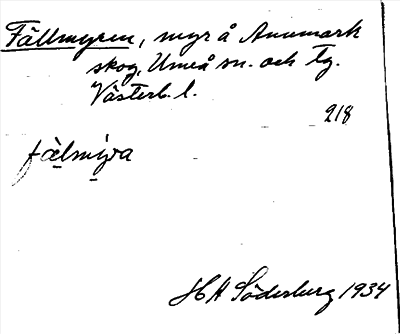 Fällmyren, myr å Anumark
skog, Umeå sn. och tg.
Västerb. l.
218
fälmýra
H A Söderberg 1934